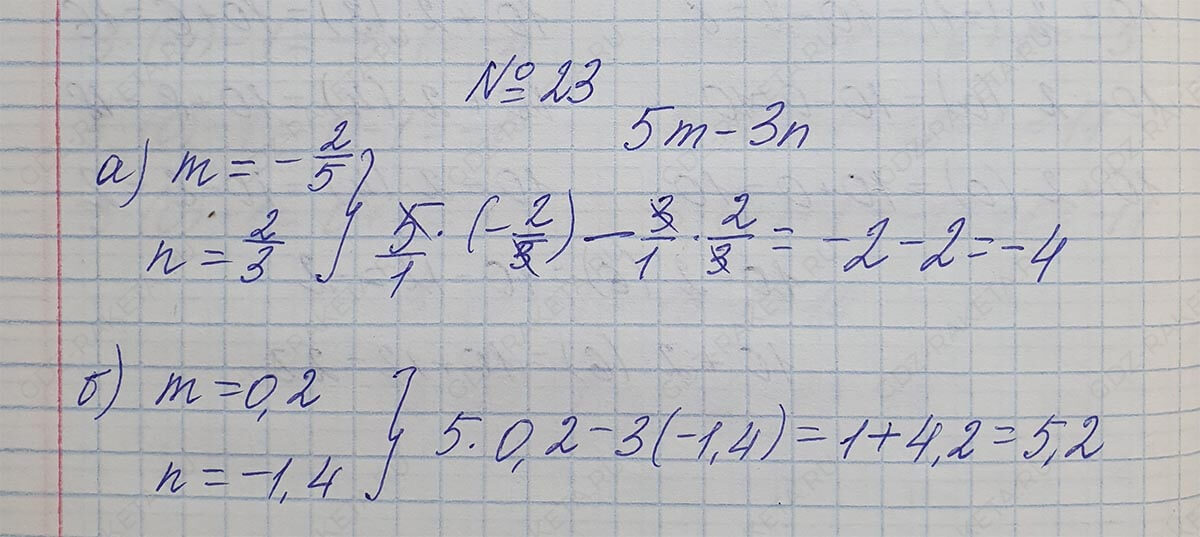 № 23
5m - 3n
а) m = - 2/5
n = 2/3 } 5/1 · (- 2/5) - 3/1 · 2/3 = -2 - 2 = -4
б) m = 0,2
n = -1,4 } 5 · 0,2 - 3(-1,4) = 1 + 4,2 = 5,2